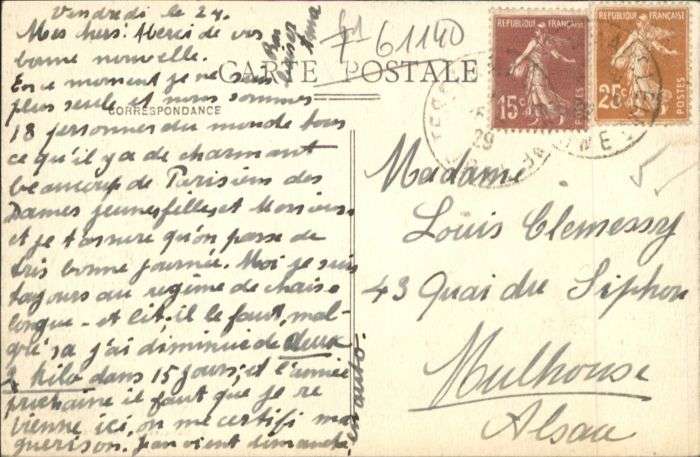 Vendredi le 24.
Mes chers. Merci de vos
bonne nouvelle.
En ce moment je ne suis
plus seule et nous sommes
18 personnes du monde tous
ce qu'il y a de charmant
beaucoup de Parisiens des
Dames jeunes filles et Messieurs
et je t'assure qu'on passe de
très bonne journée. Moi je suis
toujours au regime de chaise
longue - et lit. il le faut, mal-
gré sa j'ai diminuée de deux
2 kilo dans 15 jours, et l'année
prochaine il faut que je re
vienne ici, on me certifi ma
guerison. Jean vient dimanche
en auto.
Bon
baiser
CARTE POSTALE
CORRESPONDANCE
61140
REPUBLIQUE FRANÇAISE
15c
POSTES
REPUBLIQUE FRANÇAISE
25c
POSTES
29
Madame
Louis Clemessy
43 Quai du Siphon
Mulhouse
Alsace